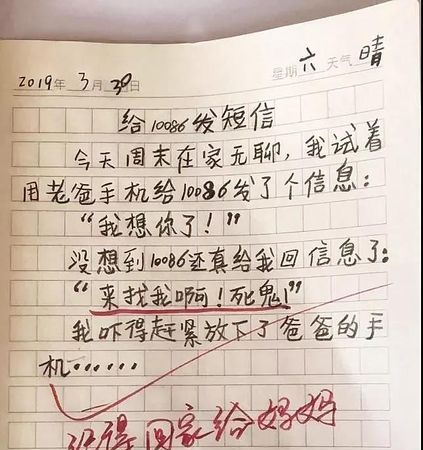 2019年 3月 30日 星期 六 天气 晴
给10086发短信
今天周末在家无聊，我试着
用老爸手机给10086发了个信息：
“我想你了！”
没想到10086还真给我回信息了：
“来找我啊！死鬼！”
我吓得赶紧放下了爸爸的手
机······
记得回家给妈妈